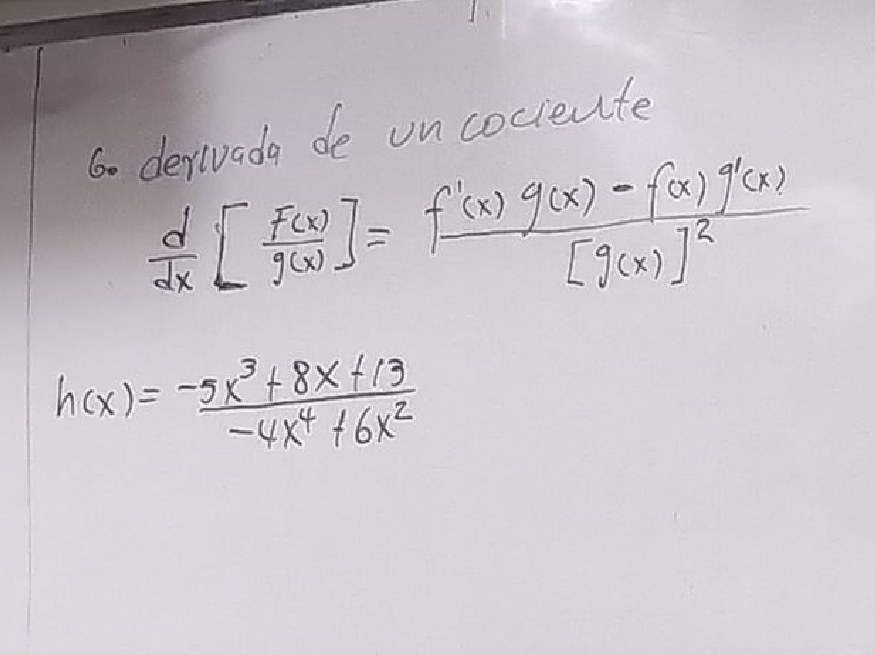 6. derivada de un cociente
d/dx [F(x)/g(x)] = f'(x) g(x) - f(x) g'(x) / [g(x)]²
h(x) = -5x³ + 8x + 13 / -4x⁴ + 6x²